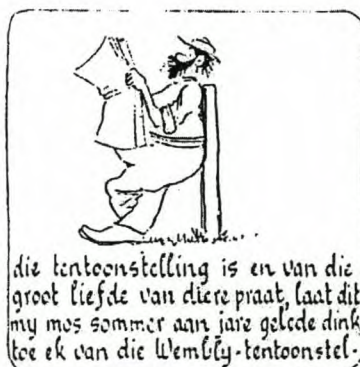 die tentoonstelling is en van die
groot liefde van diere praat, laat dit
my mos sommer aan jare gelede dink
toe ek van die Wembly-tentoonstel-